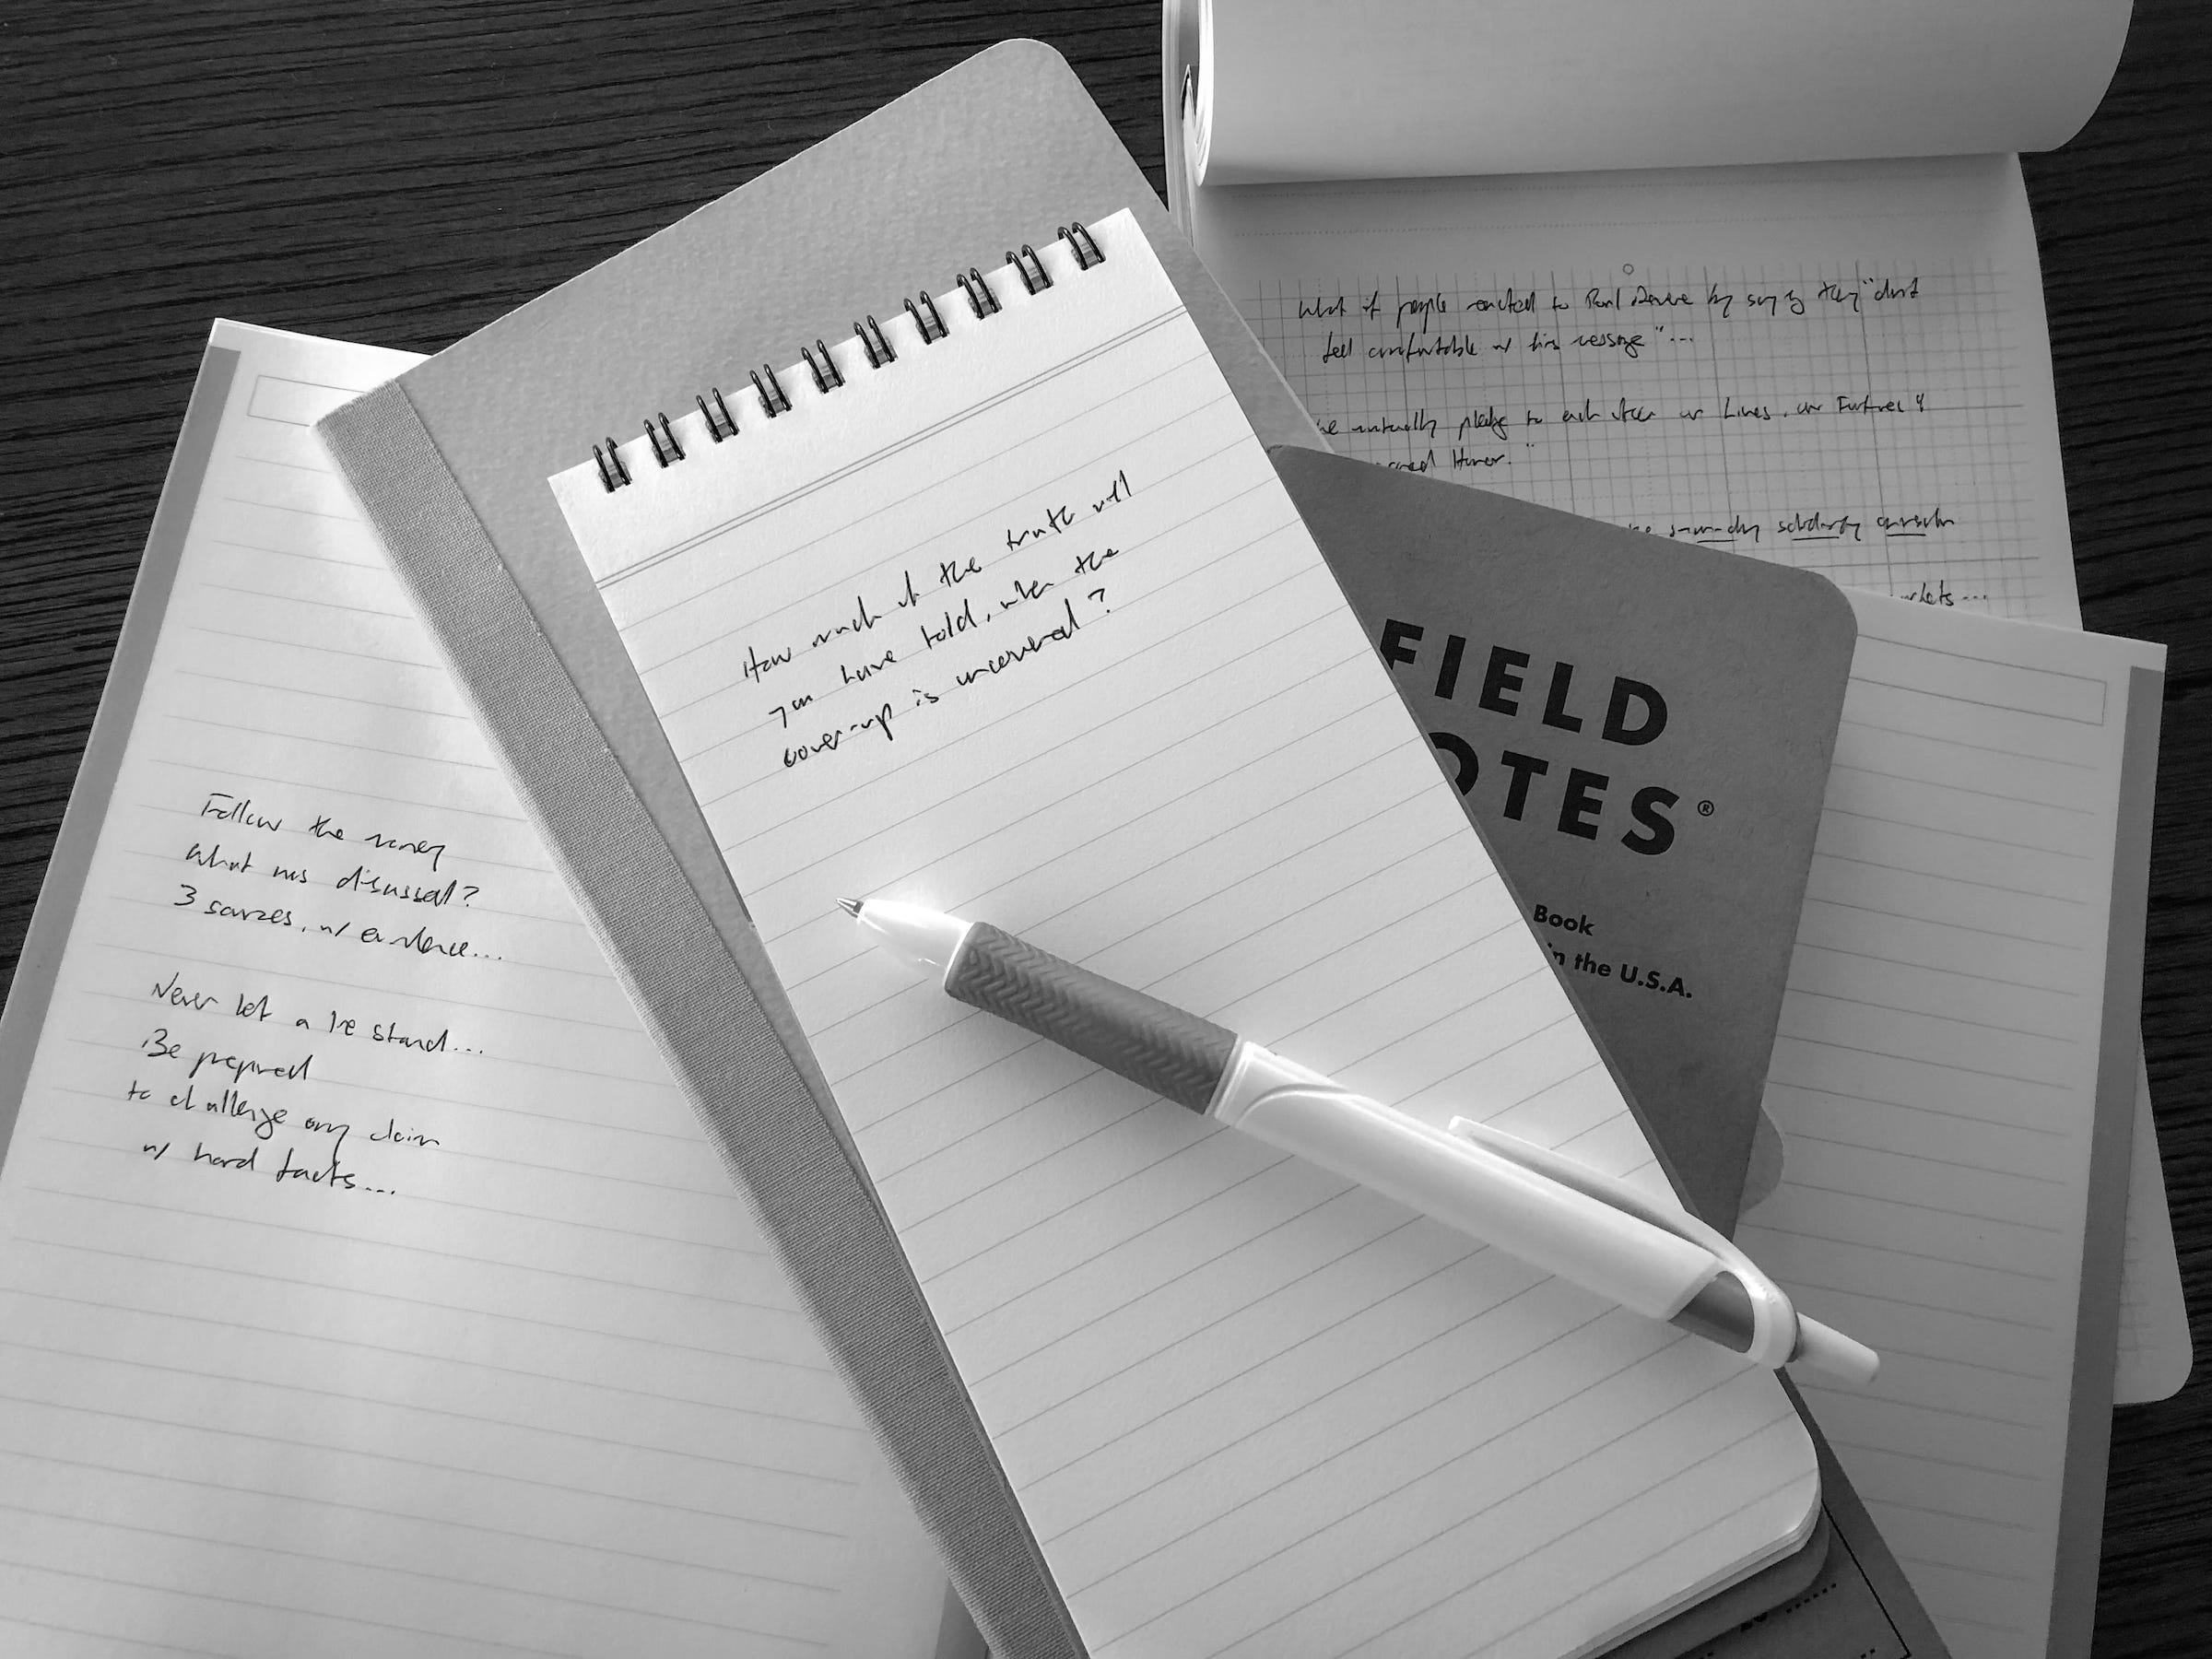 How much of the truth will
you have told, when the
cover-up is uncovered?
Follow the money
What was discussed?
3 sources, w/ evidence...
Never let a lie stand...
Be prepared
to challenge any claim
w/ hard facts...
What if people reacted to Paul Revere by saying they "didn't
feel comfortable w/ his message"...
mutually pledge to each other our Lives, our Fortunes &
Honor."
solidarity
FIELD
OTES®
Book
in the U.S.A.